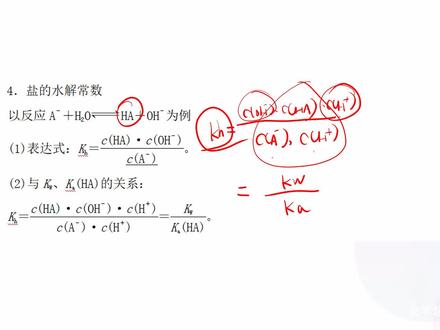 4. 盐的水解常数
以反应 A⁻＋H₂O⇌HA＋OH⁻为例
(1)表达式：Kₕ＝c(HA)·c(OH⁻)/c(A⁻)。
(2)与 K_w、Kₐ(HA)的关系：
Kₕ＝c(HA)·c(OH⁻)·c(H⁺)/c(A⁻)·c(H⁺)＝K_w/Kₐ(HA)。
Kh = c(OH⁻)·c(HA)·c(H⁺)/c(A⁻)·c(H⁺)
= Kw/Ka